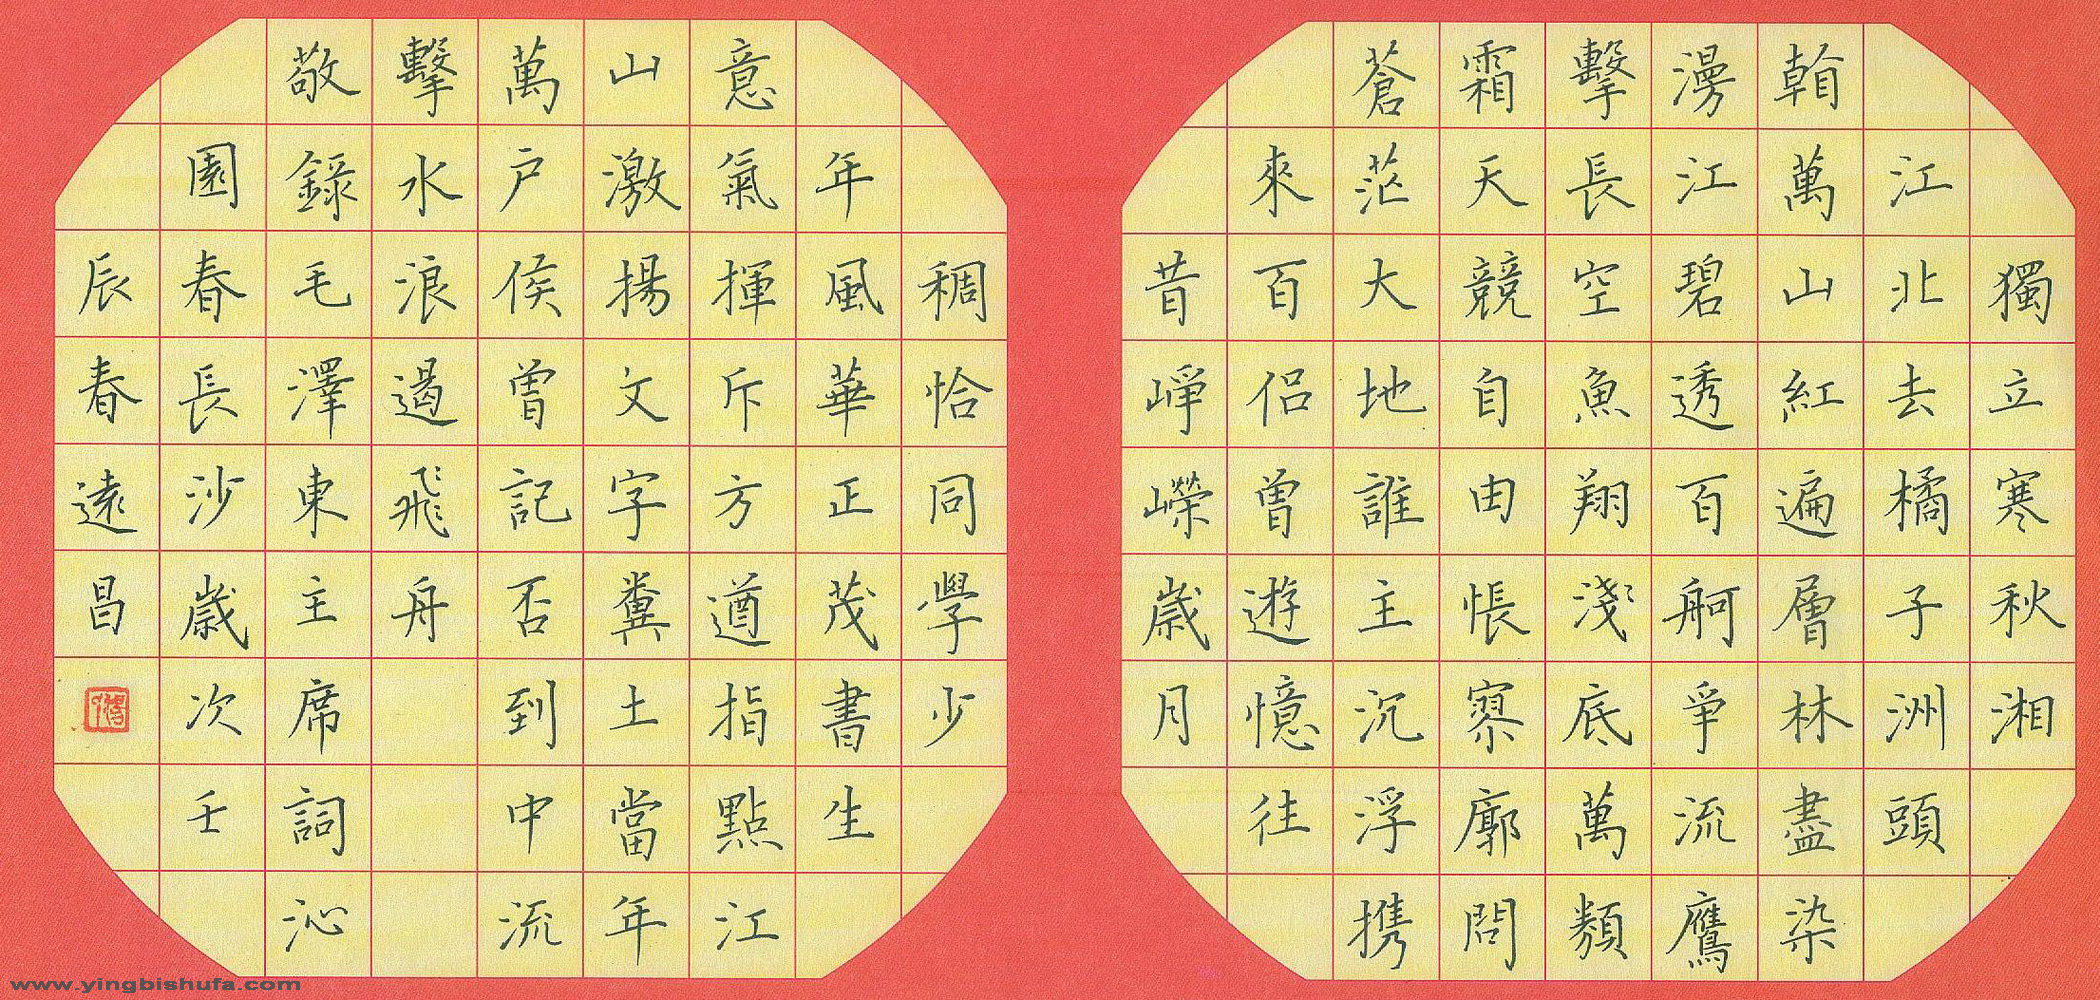 獨立寒秋湘
江北去橘子洲頭
看萬山紅遍層林盡染
漫江碧透百舸爭流鷹
擊長空魚翔淺底萬類
霜天競自由悵寥廓問
蒼茫大地誰主沉浮携
來百侣曾遊憶往
昔崢嶸歲月
稠恰同學少
年風華正茂書生
意氣揮斥方遒指點江
山激揚文字糞土當年
萬户侯曾記否到中流
擊水浪遏飛舟
敬錄毛澤東主席詞沁
園春長沙歲次壬
辰春遠昌
www.yingbishufa.com